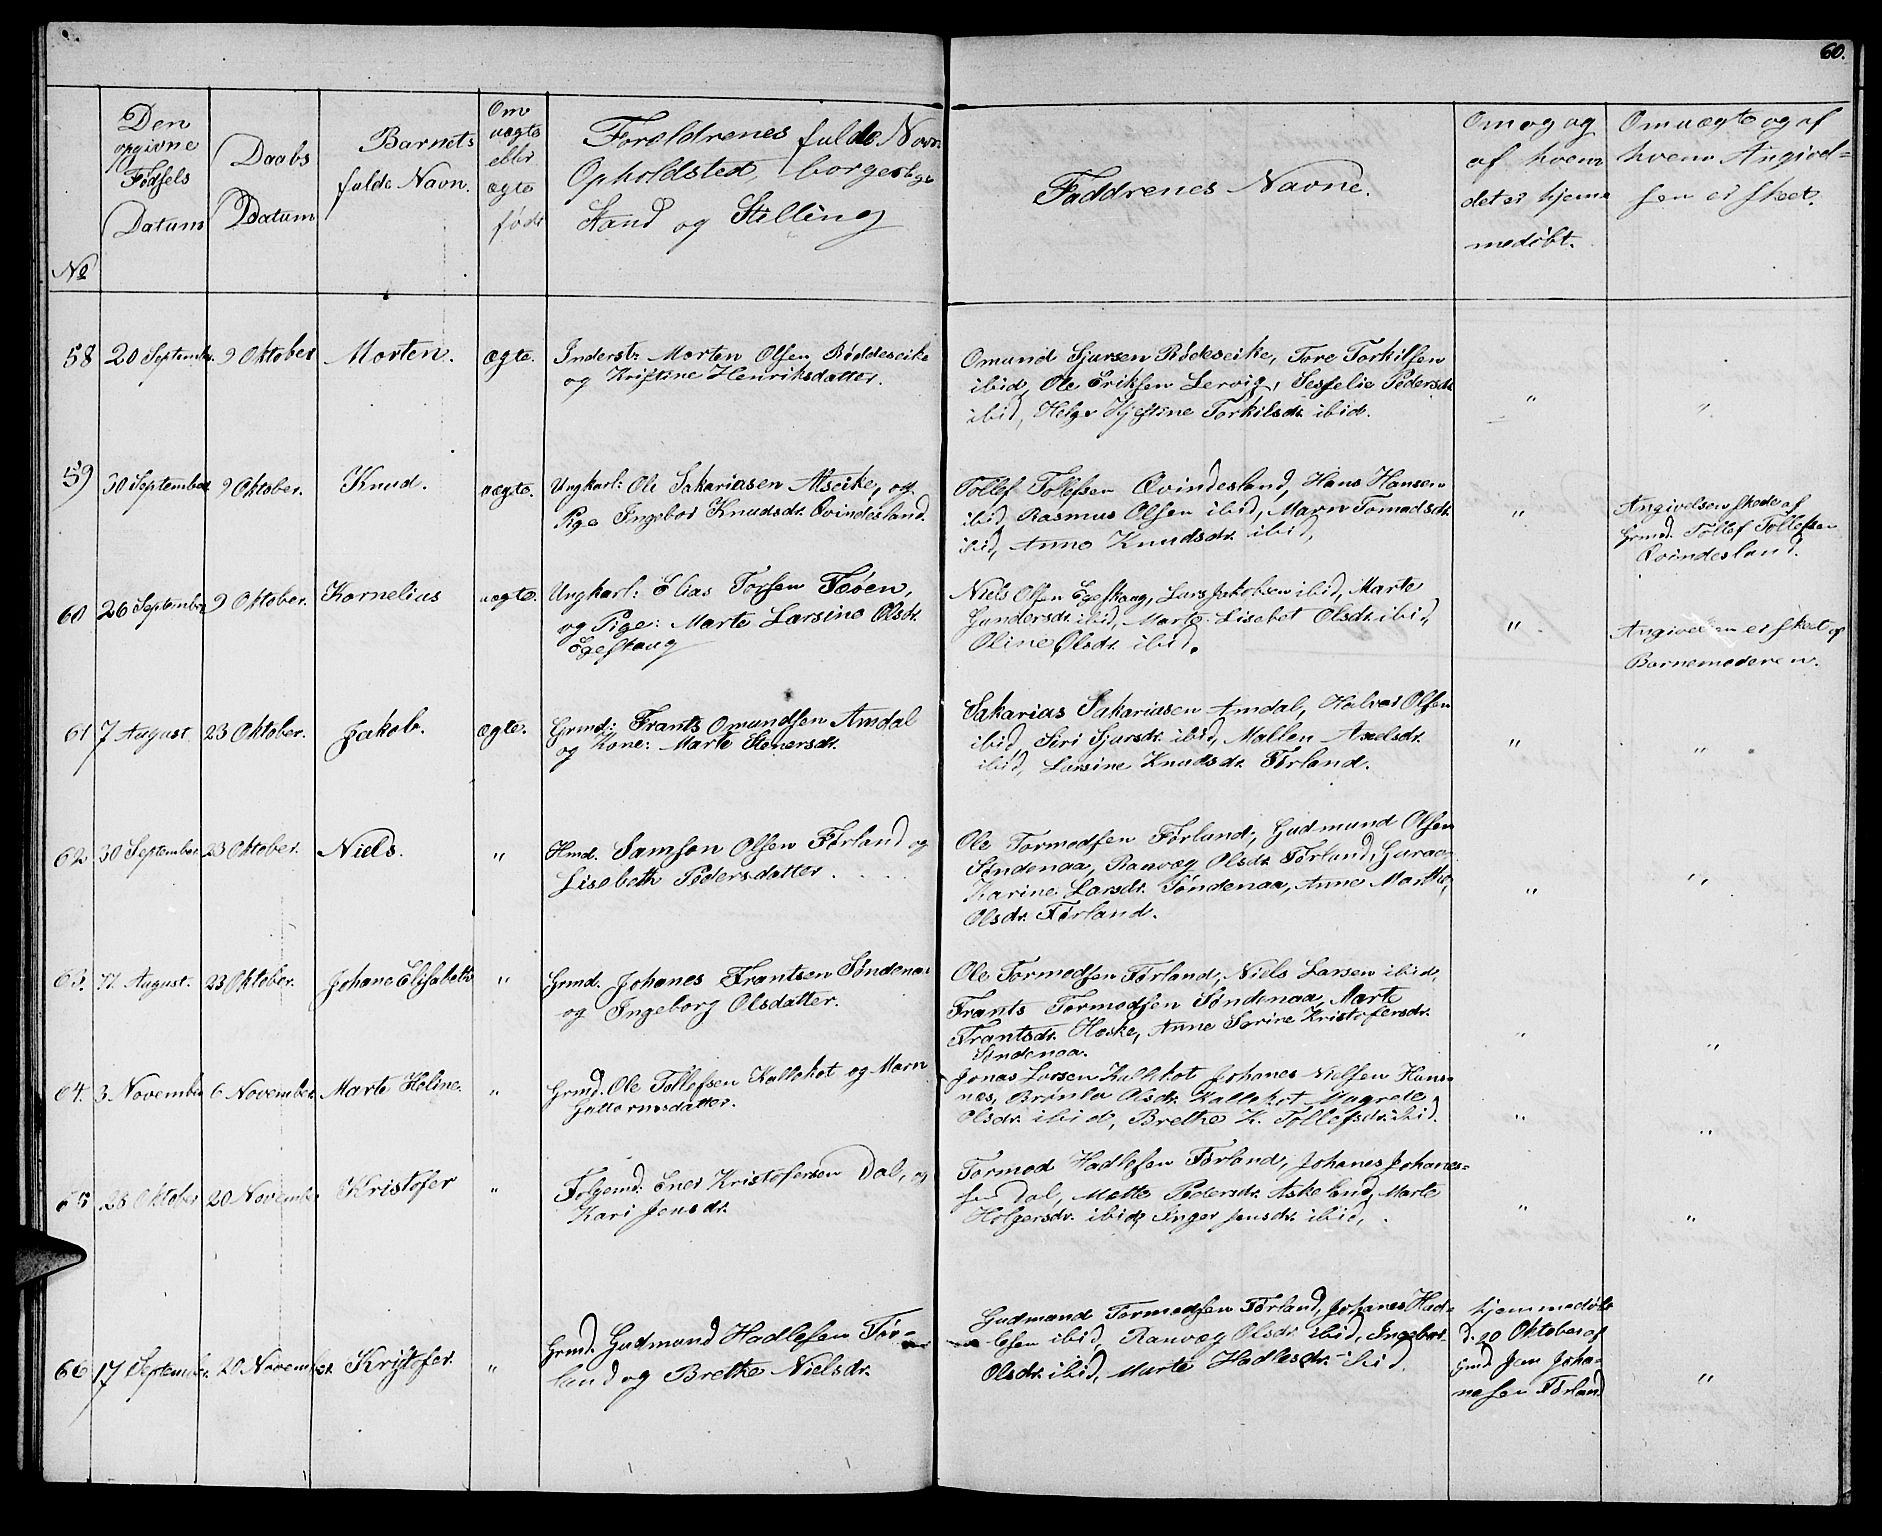 60.
No
Den opgivne Fødsels Datum
Daabs Datum
Barnets fulde Navn.
Om uægte eller ægte født
Forældrenes fulde Navn
Opholdsted, borgerlige
Stand og Stilling
Faddrenes Navne.
Om og og af hvem det er hjemmedøbt.
Om uægte og af hvem Angivelsen er skeet.
58 20 September 9 Oktober Morten. ægte. Inderst: Morten Olsen Røddeseike
og Kristine Henriksdatter.
Omund Sjursen Rødeseike, Tore Torkilsen
ibid, Ole Eriksen Lervig, Sesselie Pedersdr.
ibid, Helge Kjestine Torkilsdr. ibid.
" "
59 30 September 9 Oktober. Knud. uægte. Ungkarl: Ole Sakariasen Alseike, og
Pige Ingebor Knudsdr. Qvindesland.
Tollef Tollefsen Qvindesland, Hans Hansen
ibid, Rasmus Olsen ibid, Marn Tomasdr.
ibid, Anne Knudsdr. ibid,
"
Angivelsen skede af
Grmd. Tollef Tollefsen
Qvindesland.
60 26 September 9 Oktober. Kornelius uægte. Ungkarl: Elias Torsen Feøen,
og Pige: Marte Larsine Olsdr.
Egeskaug
Niels Olsen Egeskaug, Lars Jakobsen ibid, Marte
Gundersdr. ibid, Marte Lisebet Olsdr. ibid,
Oline Olsdr. ibid.
"
Angivelsen er skeet af
Barnemoderen.
61 7 August 23 Oktober. Jakob. ægte. Grmd: Frants Omundsen Amdal
og Kone: Marte Stenersdr.
Sakarias Sakariasen Amdal, Halvor Olsen
ibid, Siri Sjursdr. ibid, Mallen Axelsdr.
ibid, Larsine Knudsdr. Førland.
" "
62 30 September 23 Oktober. Niels. " Hmd. Samson Olsen Førland og
Lisebeth Pedersdatter.
Ole Tormodsen Førland, Gudmund Olsen
Søndenaa, Ranveg Olsdr. Førland, Guraa
Karine Larsdr. Søndenaa, Anne Marthe
Olsdr. Førland.
" "
63. 17 August. 23 Oktober. Johane Elisabeth " Grmd. Johanes Frantsen Søndenaa
og Ingeborg Olsdatter.
Ole Tormodsen Førland, Niels Larsen ibid,
Frants Tormodsen Søndenaa, Marte
Frantsdr. Heske, Anne Serine Kristofersdr.
Søndenaa.
" "
64. 3 November 6 November. Marte Heline. " Grmd. Ole Tollefsen Kallekot og Marn
Guttormsdatter.
Jonas Larsen Kallekot Johanes Nielsen Hans-
næs, Brønla Olsdr. Kallekot Magrete
Olsdr. ibid, Brethe K. Tollefsdr. ibid.
" "
65 28 Oktober 20 November Kristofer " Folgemd: Ener Kristofersen Dal, og
Kari Jensdr.
Tormod Hadlefsen Førland, Johanes Johanes-
sen Dal, Mette Pedersdr. Askeland, Marte
Holgersdr. ibid, Inger Jensdr. ibid,
" "
66 17 September. 20 November. Kristofer. " Grmd. Gudmund Hadlefsen Før-
land og Brethe Nielsdr.
Gudmund Tormodsen Førland, Johanes Had-
lefsen ibid, Ranveg Olsdr. ibid, Ingebor
Olsdr. ibid, Marte Hadlesdr. ibid.
hjemmedøbt
d. 20 Oktober af
Grmd Jens Joha-
nesen Førland
"